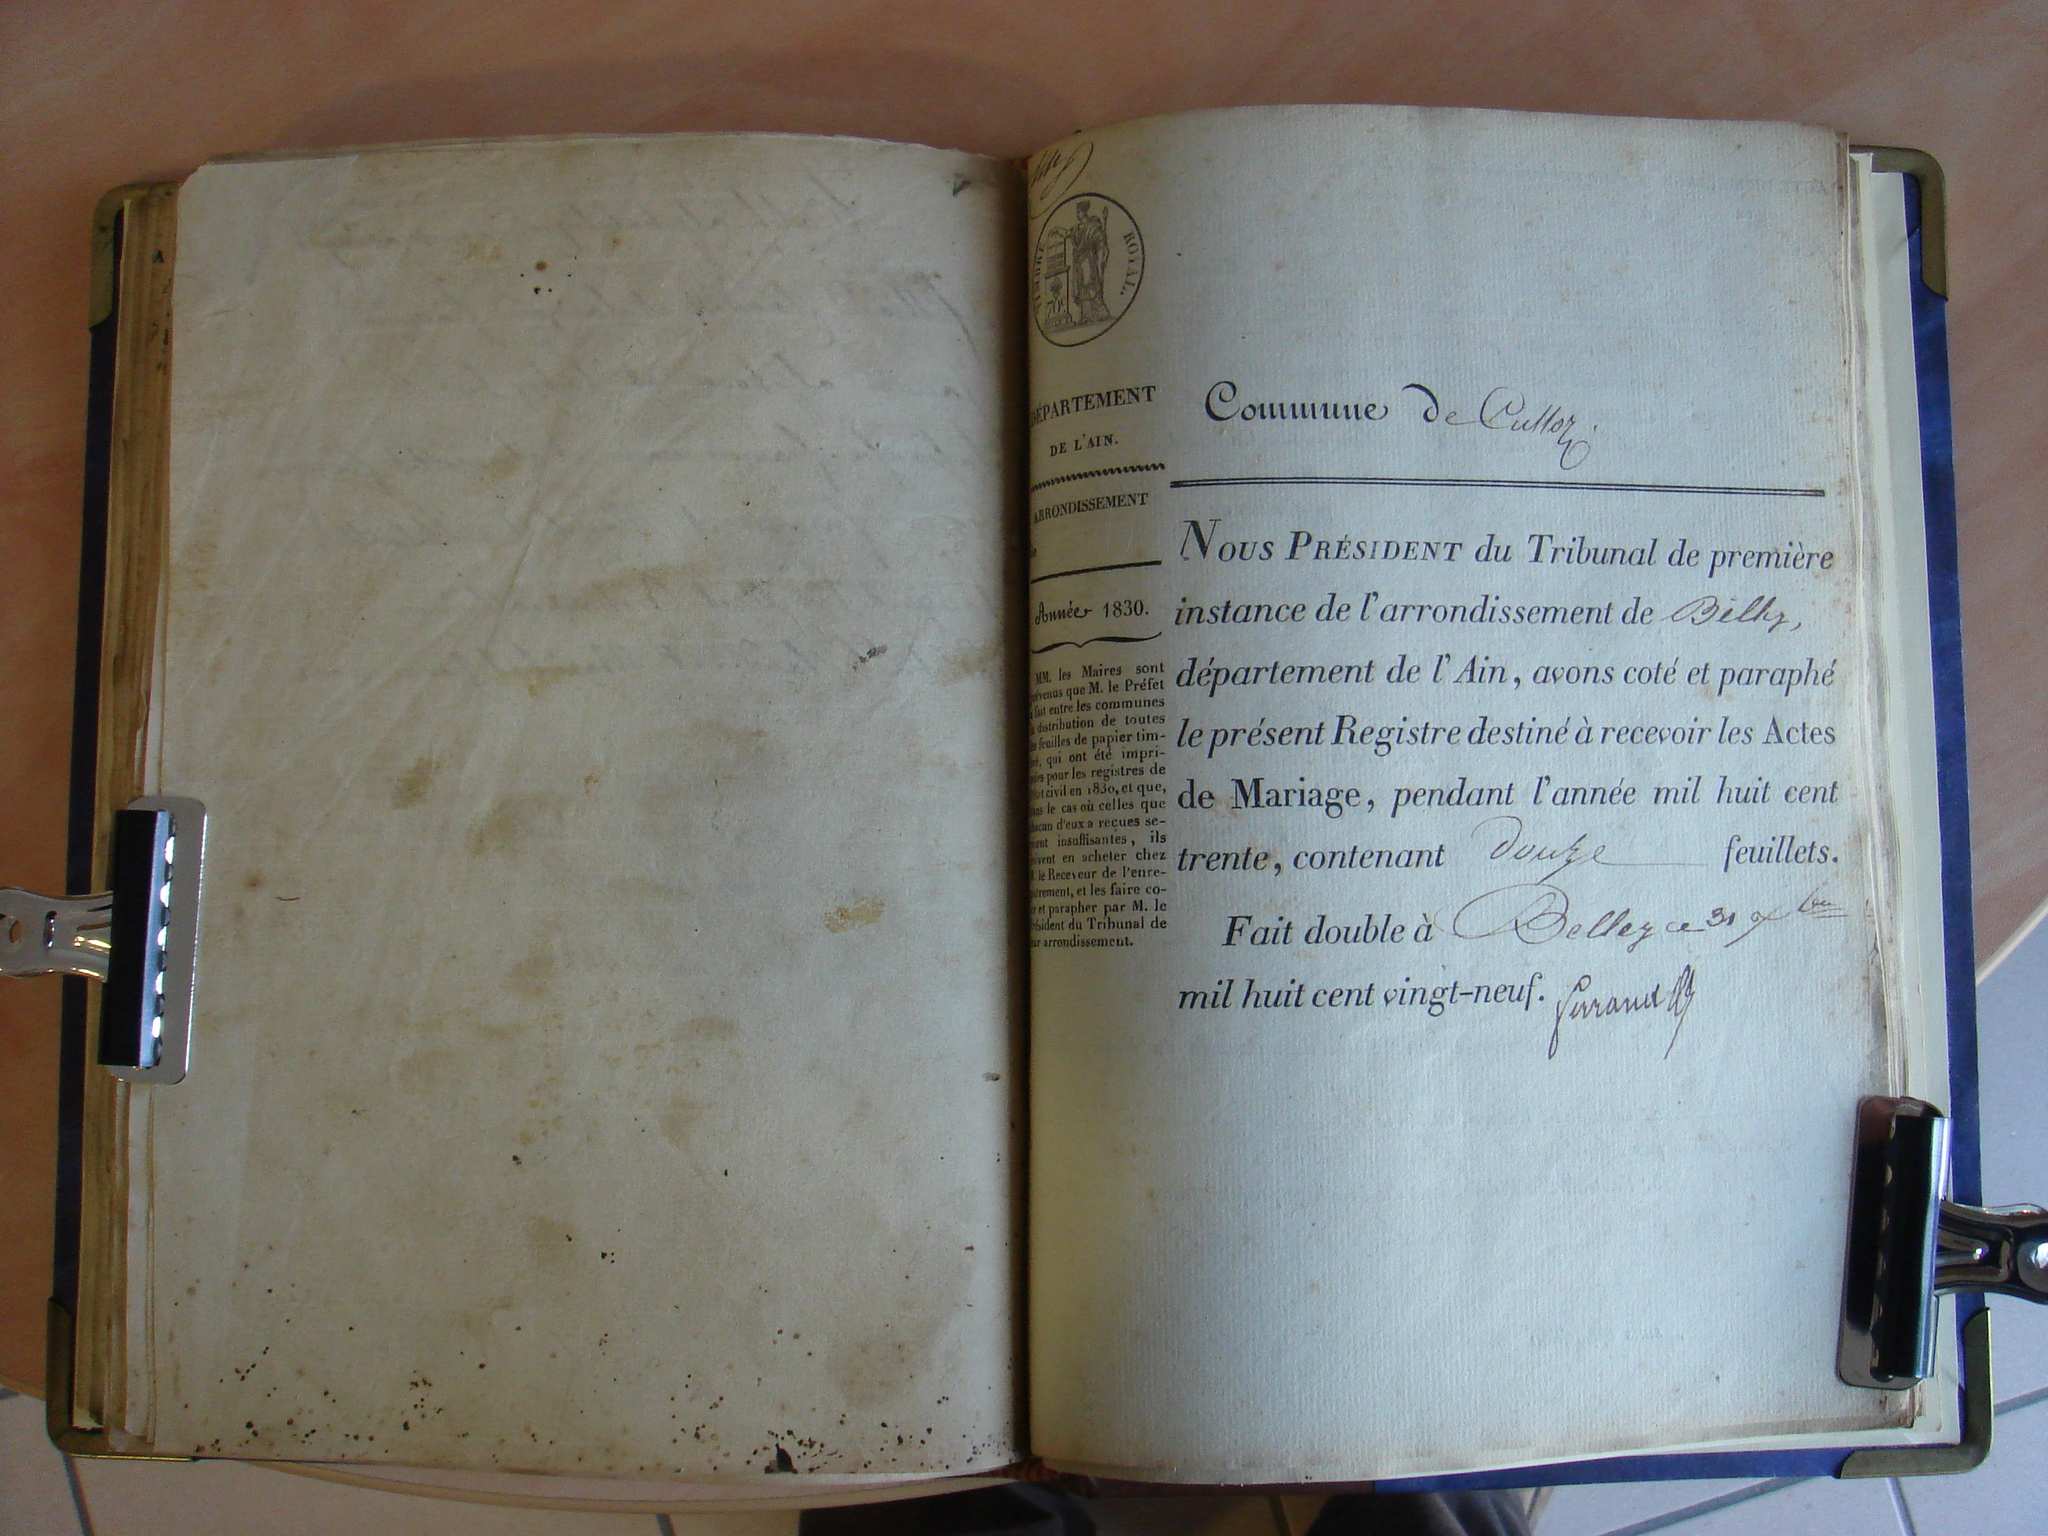 ROYAL.
DÉPARTEMENT
DE L'AIN.
ARRONDISSEMENT
Année 1830.
MM. les Maires sont
prévenus que M. le Préfet
a fait entre les communes
la distribution de toutes
les feuilles de papier tim-
bré, qui ont été impri-
mées pour les registres de
l'état civil en 1830, et que,
dans le cas où celles que
chacun d'eux a reçues se-
raient insuffisantes, ils
doivent en acheter chez
M. le Receveur de l'enre-
gistrement, et les faire co-
ter et parapher par M. le
Président du Tribunal de
leur arrondissement.
Commune de Culloz.
NOUS PRÉSIDENT du Tribunal de première
instance de l'arrondissement de Belley,
département de l'Ain, avons coté et paraphé
le présent Registre destiné à recevoir les Actes
de Mariage, pendant l'année mil huit cent
trente, contenant douze feuillets.
Fait double à Belley ce 31
mil huit cent vingt-neuf.